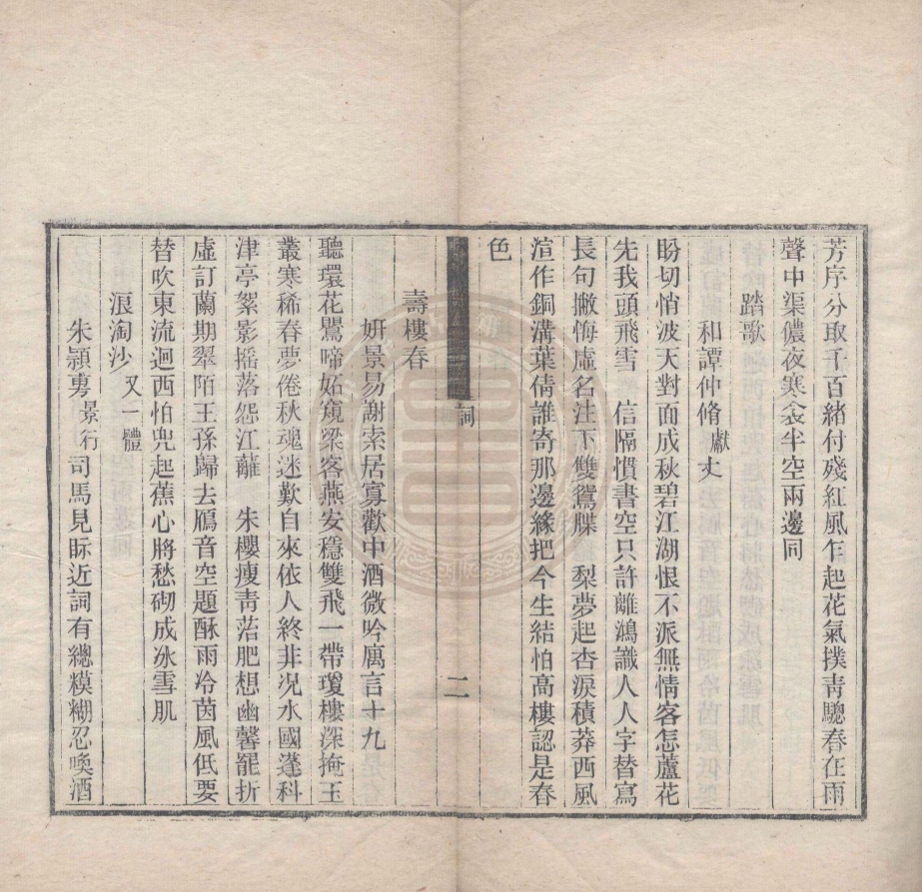 芳序分取千百緒付殘紅風乍起花氣撲靑驄春在雨
聲中渠儂夜寒衾半空兩邊同
踏歌
和譚仲脩獻丈
盼切悄波天對面成秋碧江湖恨不派無情客怎蘆花
先我頭飛雪　信隔慣書空只許離鴻識人人字替寫
長句撇悔虛名注下雙鴛牒　梨夢起杏淚積莽西風
渲作銅溝葉倩誰寄那邊緣把今生結怕高樓認是春
色
詞
二
壽樓春
妍景易謝索居寡歡中酒微吟寓言十九
聽環花鸎啼妬窺梁客燕安穩雙飛一帶瓊樓深掩玉
叢寒稀春夢倦秋魂迷歎自來依人終非况水國蓬科
津亭絮影摇落怨江蘺　朱櫻瘦靑萿肥想幽馨罷折
虛訂蘭期翠陌王孫歸去鴈音空題酥雨冷茵風低要
替吹東流迴西怕兜起蕉心將愁砌成冰雪肌
浪淘沙又一體
朱潁專景行司馬見眎近詞有總糢糊忍喚酒